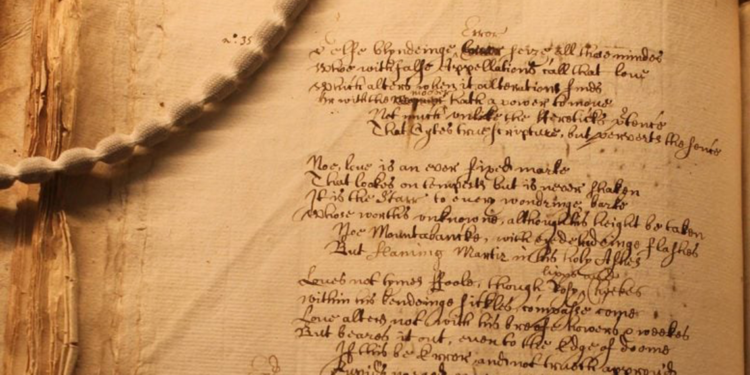 n°. 35
Error
Selfe blyndeinge seize all those mindes
Whoe with false Appellations call that love
Which alters when it alterations finds
Or with the mover hath a power to move
Not much unlike the Heretick's
That Cytes true scripture, but perverts the sence
Noe, love is an ever fixed marke
That lookes on tempests but is never shaken
It is the starr to every wandringe barke
Whose worth's unknowne, although his height be taken
Noe Mountabancke, with eye-deludeinge flashes
But flaming Martir in his holy Ashes
Loves not tymes ffoole, though Rosy Cheekes
within his bendeinge sickles, compasse come
Love alters not with his breife howers & weekes
But beares it out, even to the Edge of doome
If this be Error and not truth approved